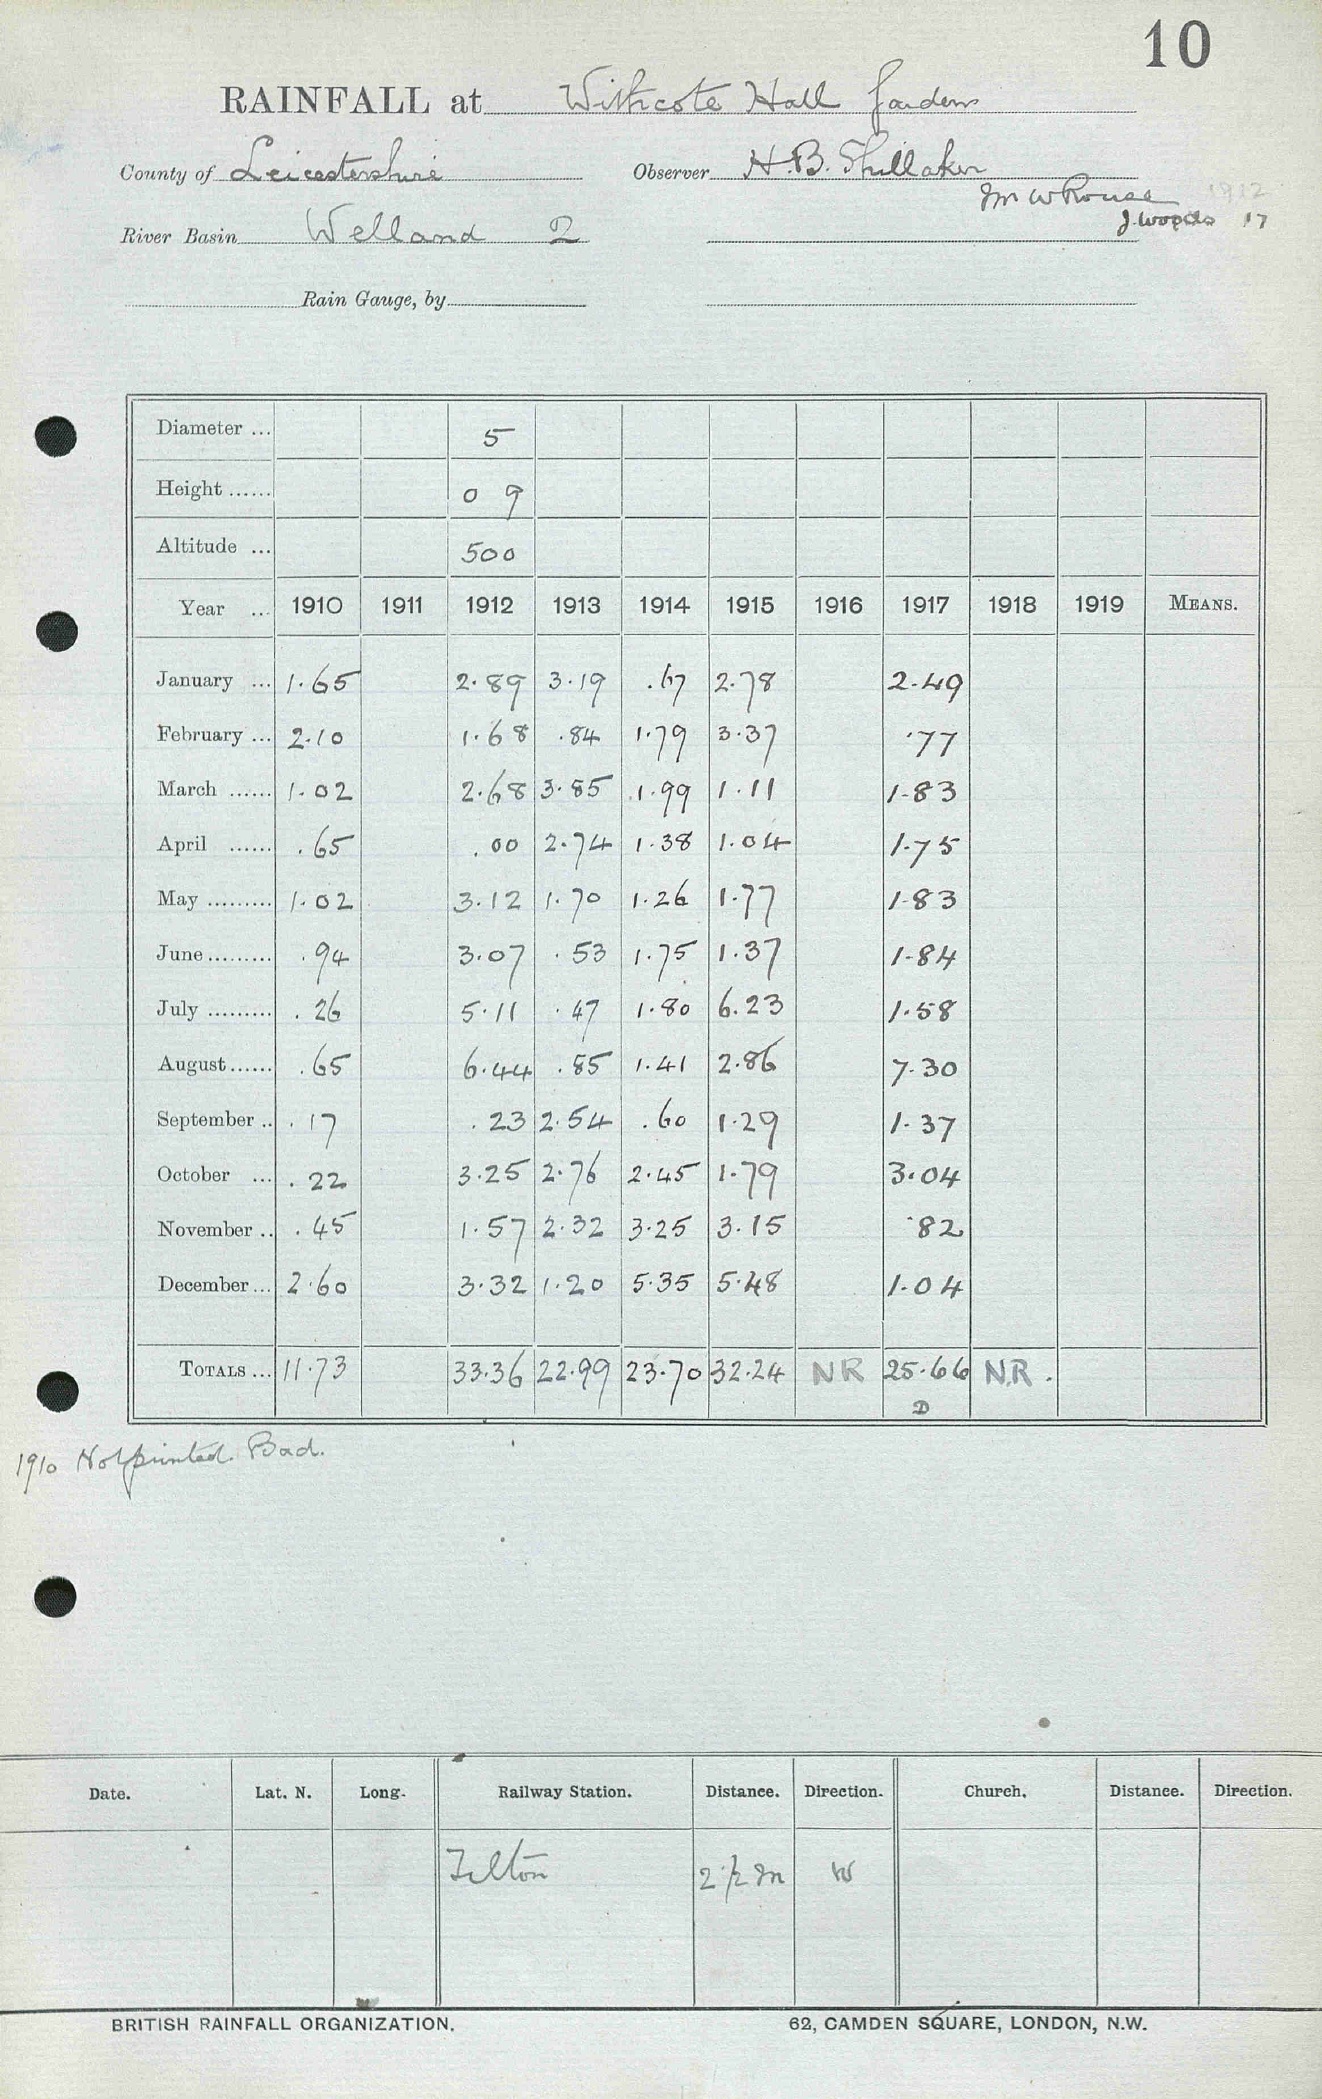 10
RAINFALL at Withcote Hall Gardens
County of Leicestershire Observer H. B. Shillaker
Mr W Rouse 1912
River Basin Welland 2 J. Woods 17
Rain Gauge, by
Diameter ... 5
Height ...... 0 9
Altitude ... 500
Year ... 1910 1911 1912 1913 1914 1915 1916 1917 1918 1919 MEANS.
January ... 1.65 2.89 3.19 .67 2.78 2.49
February ... 2.10 1.68 .84 1.79 3.37 .77
March ...... 1.02 2.68 3.85 1.99 1.11 1.83
April ...... .65 .00 2.74 1.38 1.04 1.75
May ......... 1.02 3.12 1.70 1.26 1.77 1.83
June ......... .94 3.07 .53 1.75 1.37 1.84
July ......... .26 5.11 .47 1.80 6.23 1.58
August ...... .65 6.44 .85 1.41 2.86 7.30
September .. .17 .23 2.54 .60 1.29 1.37
October ... .22 3.25 2.76 2.45 1.79 3.04
November .. .45 1.57 2.32 3.25 3.15 .82
December ... 2.60 3.32 1.20 5.35 5.48 1.04
TOTALS ... 11.73 33.36 22.99 23.70 32.24 NR 25.66 NR.
D
1910 Not printed. Bad.
Date. Lat. N. Long. Railway Station. Distance. Direction. Church. Distance. Direction.
Tilton 2 1/2 m W
BRITISH RAINFALL ORGANIZATION. 62, CAMDEN SQUARE, LONDON, N.W.